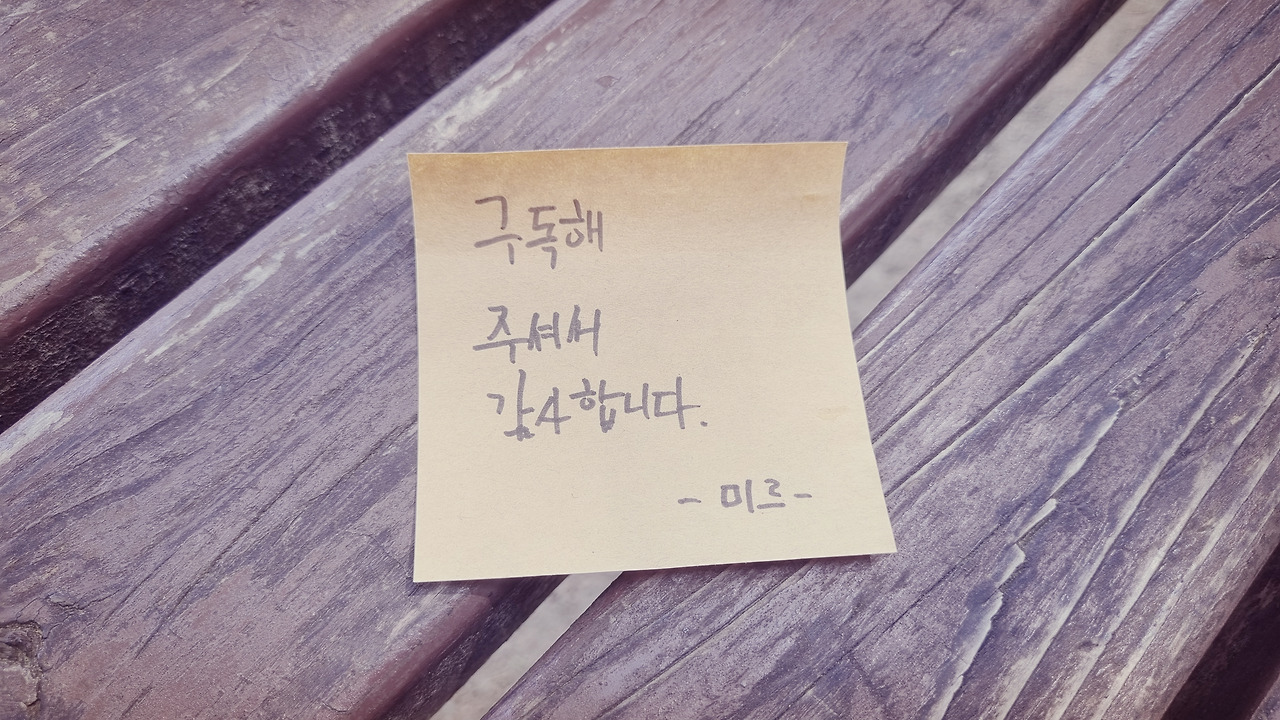 구독해
주셔서
감사합니다.
- 미르-